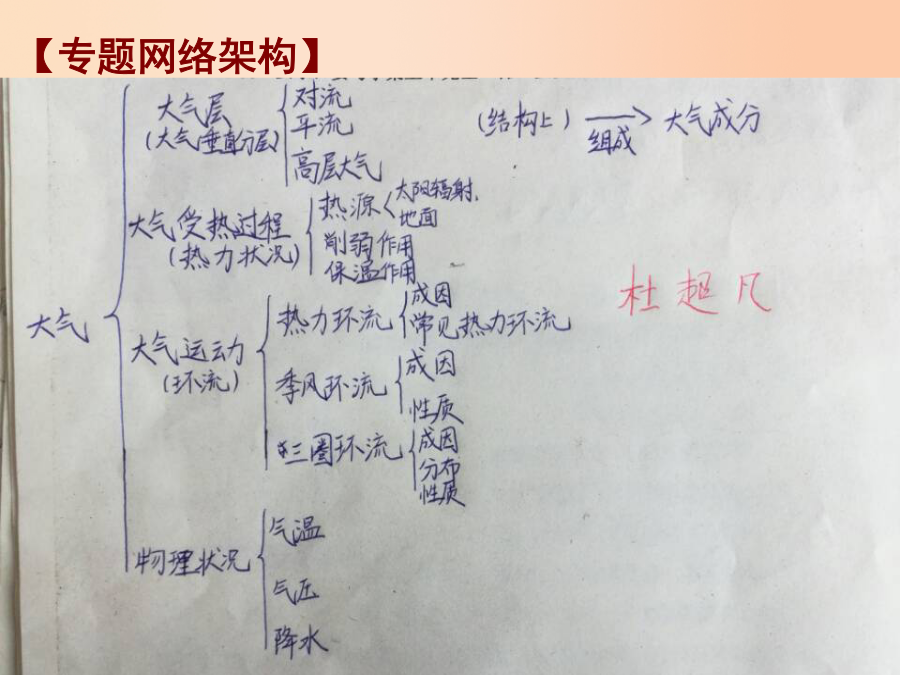 【专题网络架构】
大气
大气层
(大气垂直分层)
对流
平流
高层大气
(结构上)
组成
大气成分
大气受热过程
(热力状况)
热源
太阳辐射、
地面
削弱作用
保温作用
杜超凡
大气运动
(环流)
热力环流
成因
常见热力环流
季风环流
成因
性质
三圈环流
成因
分布
性质
物理状况
气温
气压
降水